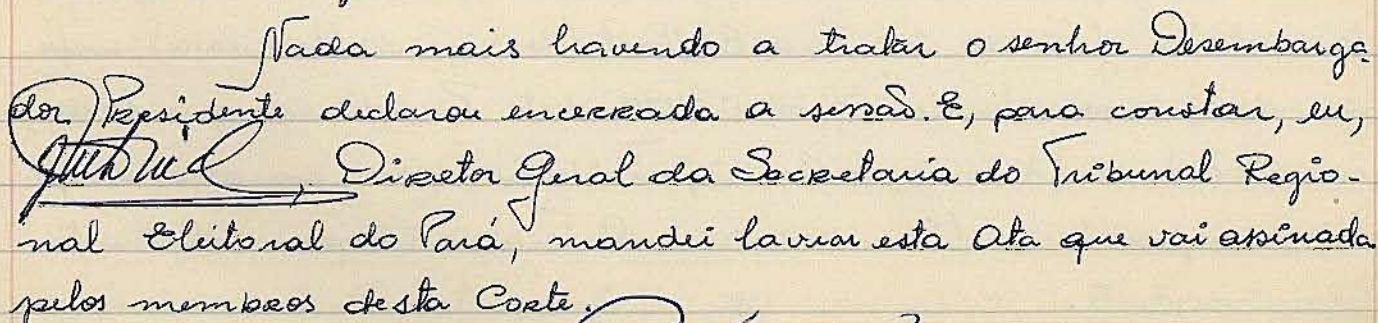 Nada mais havendo a tratar o senhor Desembarga
dor Presidente declarou encerrada a sessão. E, para constar, eu,
, Diretor Geral da Secretaria do Tribunal Regio-
nal Eleitoral do Pará, mandei lavrar esta Ata que vai assinada
pelos membros desta Corte.